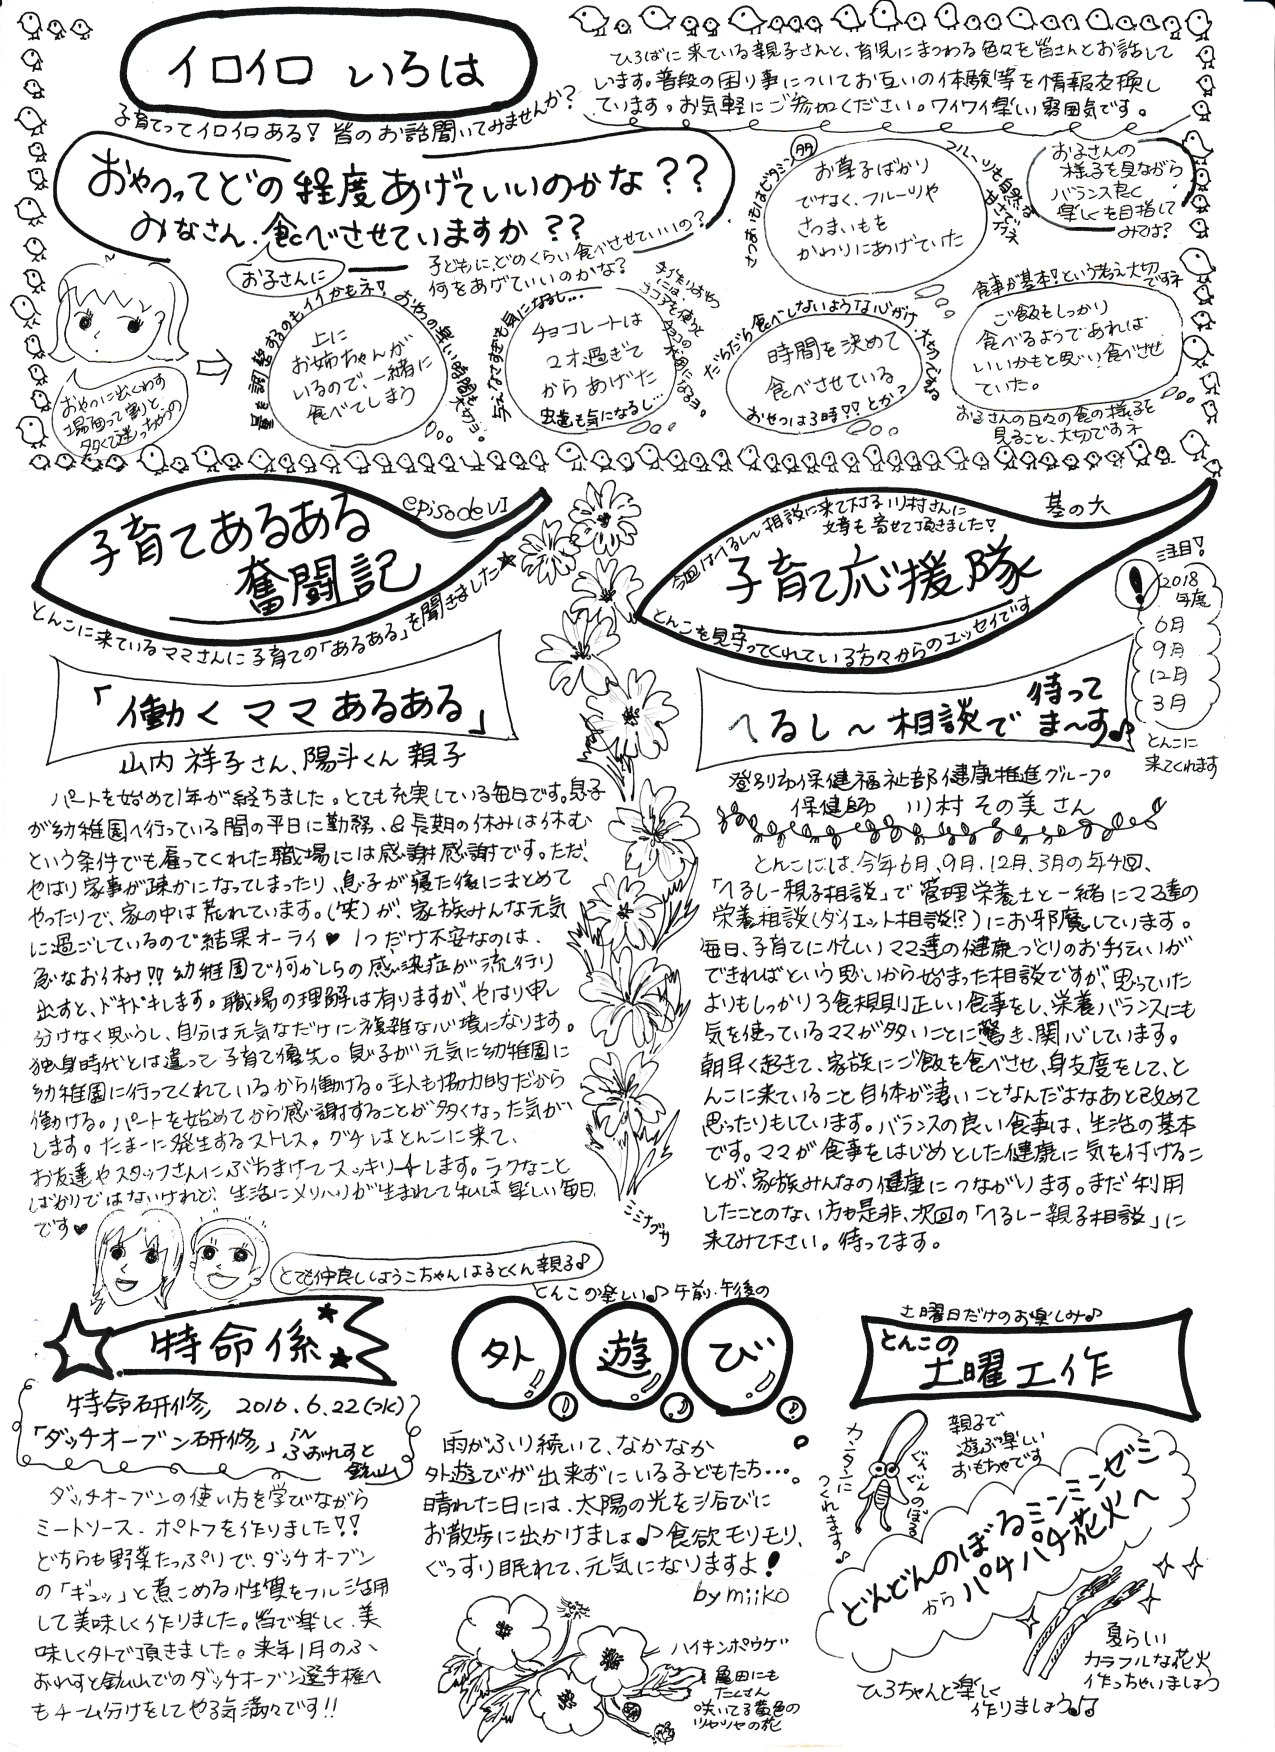 イロイロ いろは
子育てってイロイロある！皆のお話聞いてみませんか？
ひろばに来ている親子さんと、育児にまつわる色々を皆さんとお話して
います。普段の困り事についてお互いの体験等を情報交換し
ています。お気軽にご参加ください。ワイワイ楽しい雰囲気です。
おやつってどの程度あげていいのかな？？
みなさん、食べさせていますか？？
お子さんに
子どもに、どのくらい食べさせていいの？
何をあげていいのかな？
おやつに出くわす
場面って割と
多くて迷っちゃうの
量を調整するのもイイかもネ！
上に
お姉ちゃんが
いるので、一緒に
食べてしまう
おやつの楽しい時間も大切ヨ。
与えなさすぎも気になるし…
チョコレートは
2才過ぎて
からあげた
虫歯も気になるし…
さつまいもはビタミン多
お菓子ばかり
でなく、フルーツや
さつまいもを
かわりにあげていた
フルーツも自然な
甘さでグラネ
お子さんの
様子を見ながら
バランス良く
楽しくを目指して
みては？
だらだら食べしないような心がけ、大切よね
時間を決めて
食べさせている
おやつは3時!! とか？
食事が基本！という考え大切
ですネ
ご飯をしっかり
食べるようであれば
いいかもと思い、食べさせ
ていた。
お子さんの日々の食の様子を
見ること、大切ですネ
子育てあるある
奮闘記
episode VI
とんこに来ているママさんに子育ての「あるある」を聞きました★
「働くママあるある」
山内 祥子さん、陽斗くん親子
パートを始めて1年が経ちました。とても充実している毎日です。息子
が幼稚園へ行っている間の平日に勤務、&長期の休みは休む
という条件でも雇ってくれた職場には感謝感謝です。ただ、
やはり家事が疎かになってしまったり、息子が寝た後にまとめて
やったりで、家の中は荒れています。(笑)が、家族みんな元気
に過ごしているので結果オーライ♥ 1つだけ不安なのは、
急なお休み!! 幼稚園で何かしらの感染症が流行り
出すと、ドキドキします。職場の理解は有りますが、やはり申し
分けなく思うし、自分は元気なだけに複雑な心境になります。
独身時代とは違って子育て優先。息子が元気に幼稚園に
幼稚園に行ってくれているから働ける。主人も協力的だから
働ける。パートを始めてから感謝することが多くなった気が
します。たまーに発生するストレス。グチはとんこに来て、
お友達やスタッフさんにぶちまけてスッキリーします。ラクなこと
ばかりではないけれど、生活にメリハリが生まれて私は楽しい毎日
です♥
とても仲良ししょうこちゃんはるとくん親子♪
ミミナグサ
今回はへるしー相談に来て村子川村さんに
文章も寄せて頂きました！
其の六
子育て応援隊
とんこを見守ってくれている方々からのエッセイです
注目！
！
2018
年度
6月
9月
12月
3月
とんこに
来てくれます
へるし～相談で 待って
ま～す♪
登別市保健福祉部健康推進グループ
保健師 川村 その美さん
とんこには、今年6月、9月、12月、3月の年4回、
「へるしー親子相談」で管理栄養士と一緒にママ達の
栄養相談(ダイエット相談!?)にお邪魔しています。
毎日、子育てに忙しいママ達の健康づくりのお手伝いが
できればという思いから始まった相談ですが、思っていた
よりもしっかり3食規則正しい食事をし、栄養バランスにも
気を使っているママが多いことに驚き、関心しています。
朝早く起きて、家族にご飯を食べさせ、身支度をして、と
んこに来ていること自体が凄いことなんだよなあと改めて
思ったりもしています。バランスの良い食事は、生活の基本
です。ママが食事をはじめとした健康に気を付けるこ
とが、家族みんなの健康につながります。まだ利用
したことのない方も是非、次回の「へるしー親子相談」に
来てみて下さい。待ってます。
特命係
特命研修 2016.6.22(水)
「ダッチオーブン研修」 iN
ふぉれすと
鉱山
ダッチオーブンの使い方を学びながら
ミートソース、ポトフを作りました!!
どちらも野菜たっぷりで、ダッチオーブン
の「ギュッ」と煮こめる性質をフル活用
して美味しく作りました。皆で楽しく、美
味しく外で頂きました。来年1月のふ、
ぉれすと鉱山でのダッチオーブン選手権へ
もチーム分けをしてやる気満々です!!
とんこの楽しい♪午前・午後の
外遊び
雨がふり続いて、なかなか
外遊びが出来ずにいる子どもたち…。
晴れた日には、太陽の光を浴びに
お散歩に出かけましょ♪食欲モリモリ、
ぐっすり眠れて、元気になりますよ！
by miiko
ハイキンポウゲ
亀田にも
たくさん
咲いてる黄色の
ツヤツヤの花
土曜日だけのお楽しみ♪
とんこの
土曜工作
カンタンに
つくれます♪
ぐんぐんのぼる
親子で
遊ぶ楽しい
おもちゃです
どんどんのぼるミンミンゼミ
からパチパチ花火へ
夏らしい
カラフルな花火
作っちゃいましょう
ひろちゃんと楽しく
作りましょう♪♫